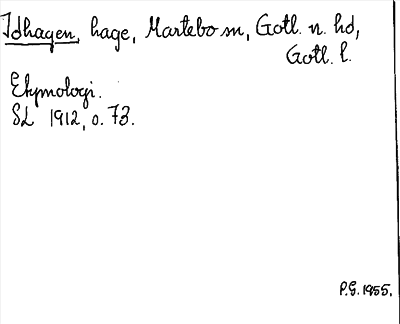 Idhagen, hage, Martebo sn, Gotl. n. hd,
Gotl. l.
Etymologi.
SL 1912, s. 73.
P.G. 1955.